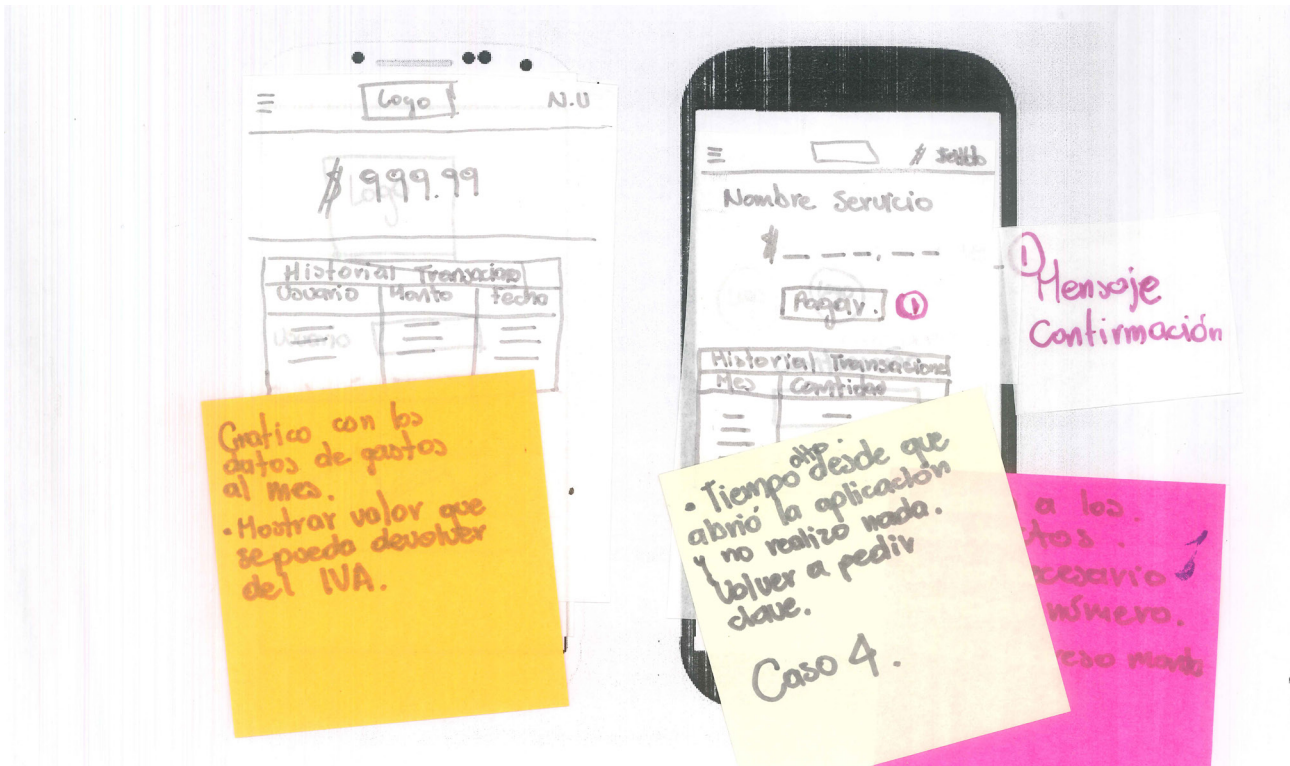 Logo
N.U
$ 999.99
Historial
Usuario
Monto
fecha
Grafico con los
datos de gastos
al mes.
• Mostrar valor que
se pueda devolver
del IVA.
$
Nombre Servicio
$ _ _ _ _ . _ _
Pagar. ①
Historial Transacional
Mes
Cantidad
① Mensaje
Confirmación
• Tiempo alto desde que
abrió la aplicación
y no realizo nada.
Volver a pedir
clave.
Caso 4.
a los.
número.